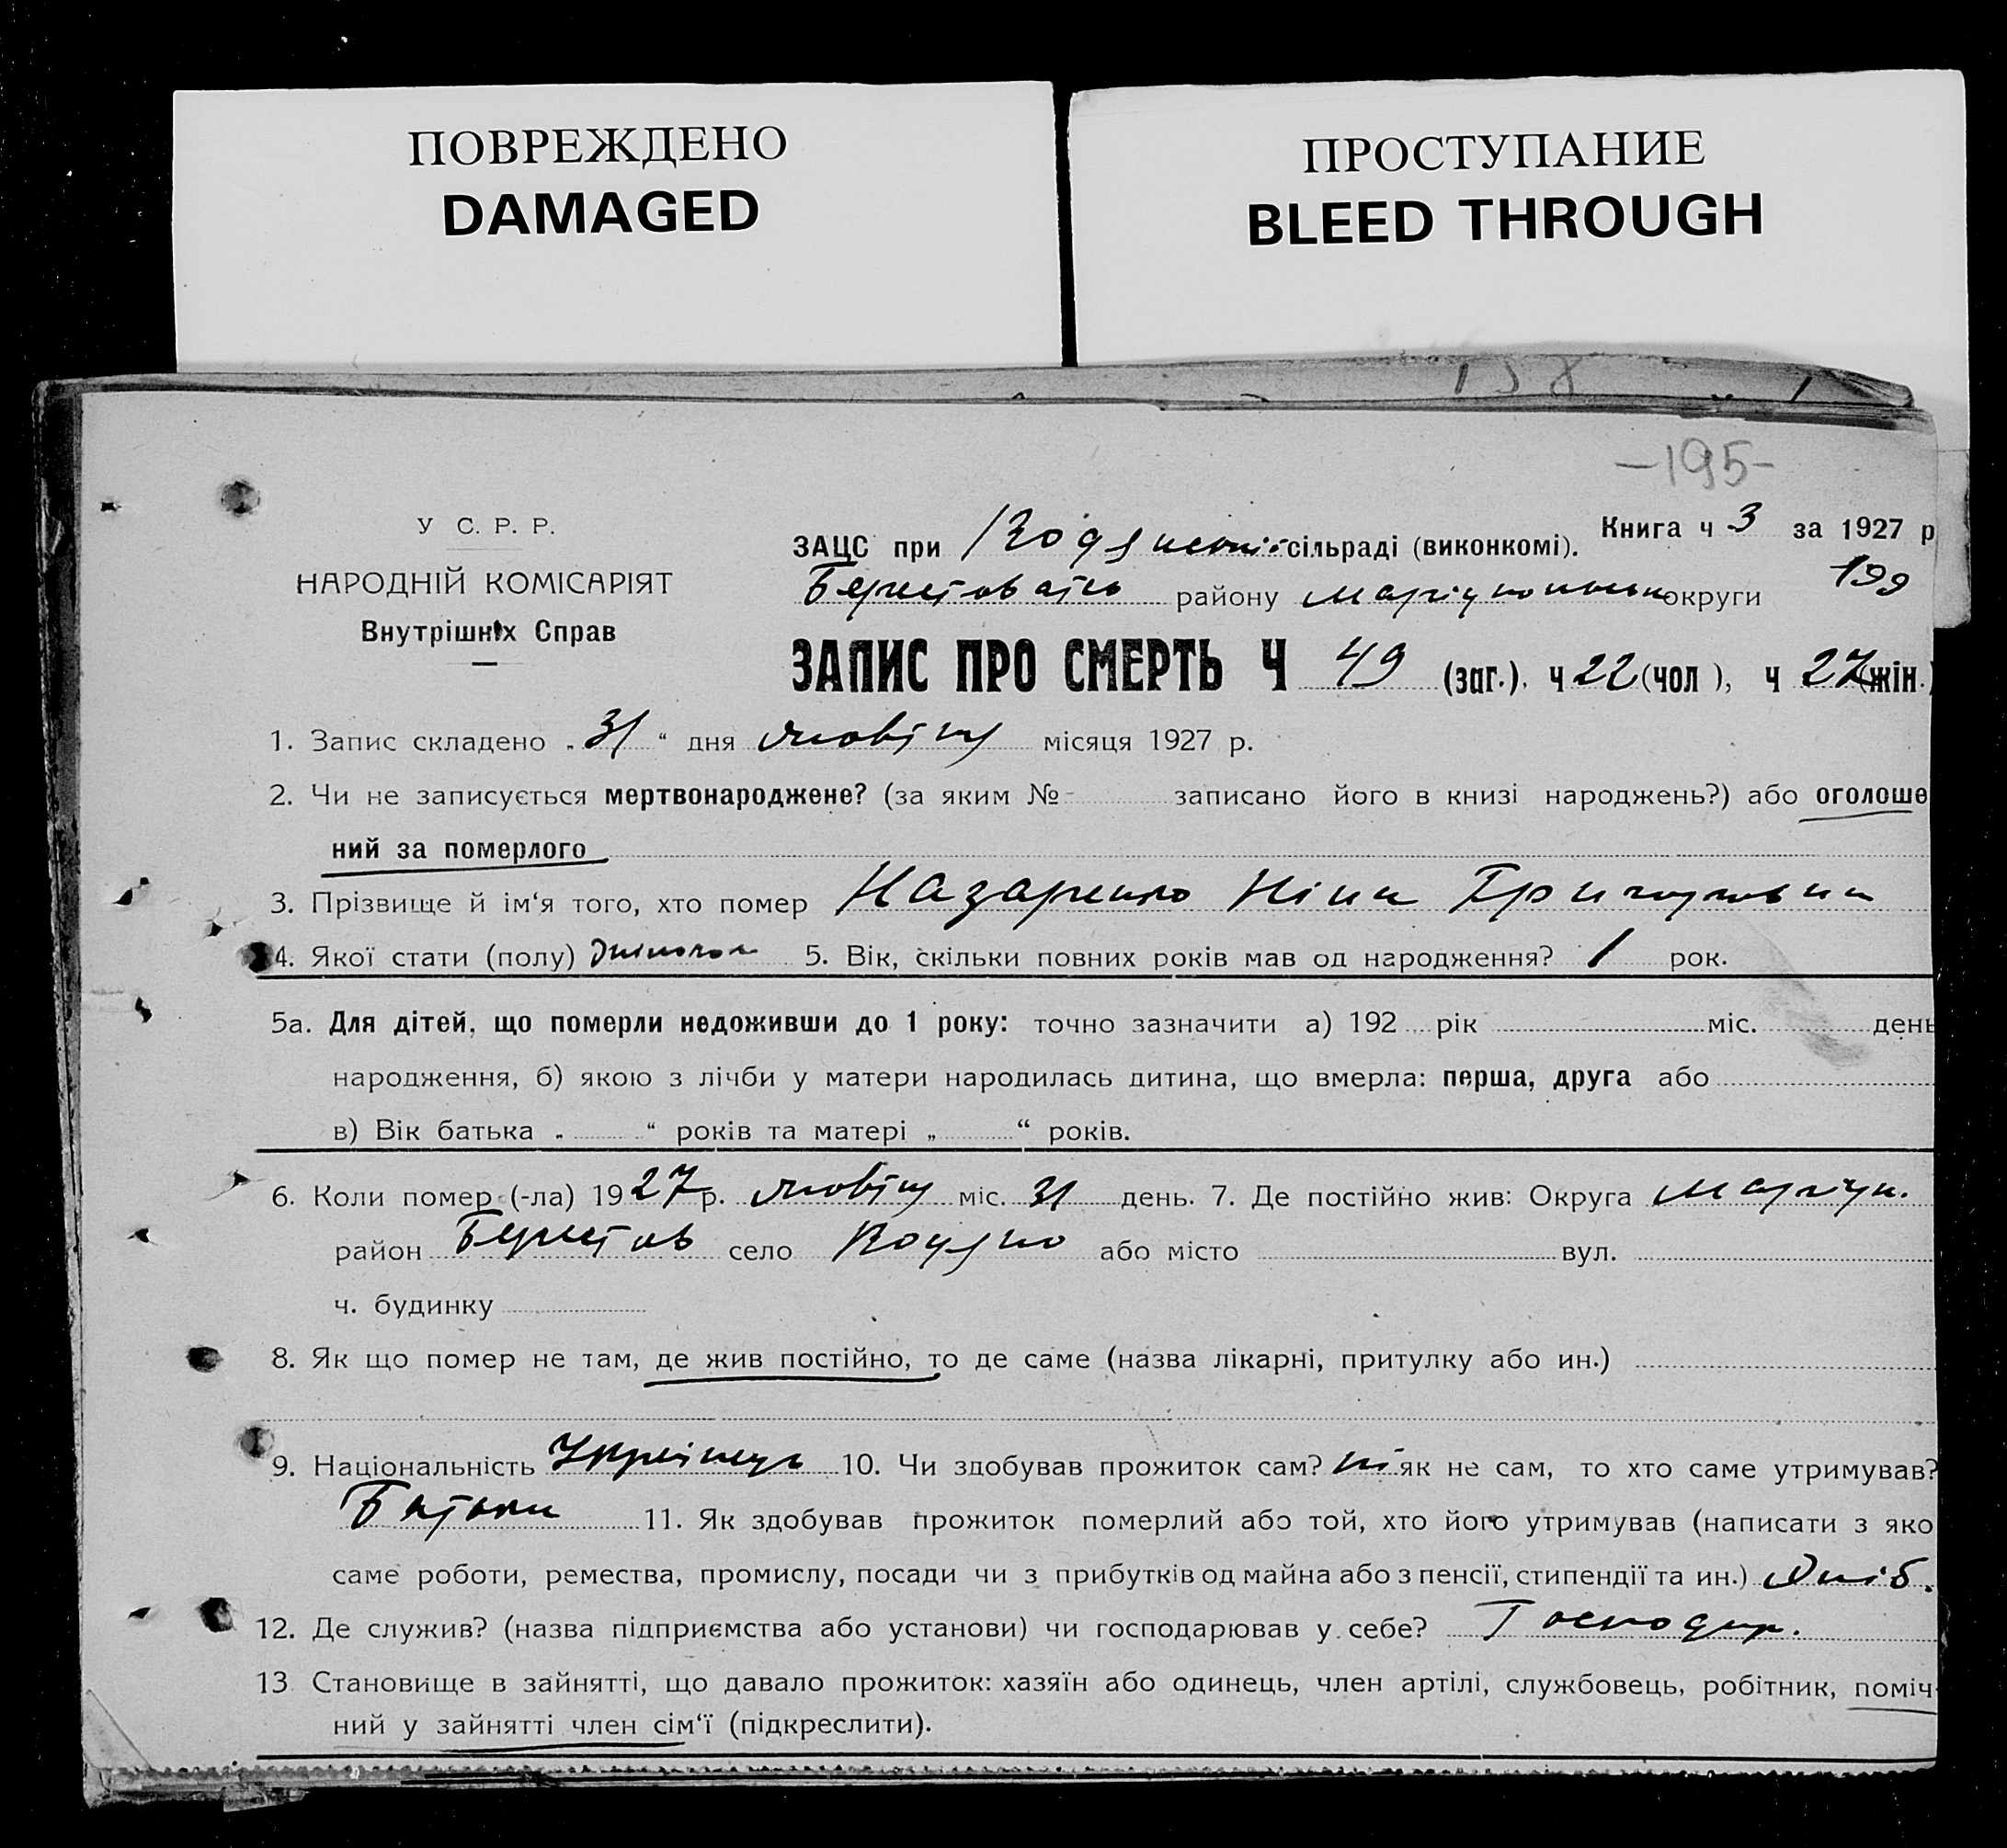 ПОВРЕЖДЕНО
DAMAGED
ПРОСТУПАНИЕ
BLEED THROUGH
138
-195-
У С. Р. Р.
НАРОДНІЙ КОМІСАРІЯТ
Внутрішніх Справ
Книга ч 3 за 1927 р
ЗАЦС при сільраді (виконкомі).
199
району округи
ЗАПИС ПРО СМЕРТЬ Ч 49 (заг.). ч 22 (чол ), ч 27 (жін.)
1. Запис складено „ 31 “ дня місяця 1927 р.
2. Чи не записується мертвонароджене? (за яким № - записано його в книзі народжень?) або оголоше
ний за померлого
3. Прізвище й ім‘я того, хто помер Назаренко Ніна Григоровна
4. Якої стати (полу) 5. Вік, скільки повних років мав од народження? 1 рок.
5а. Для дітей, що померли недоживши до 1 року: точно зазначити а) 192 рік міс. день
народження, б) якою з лічби у матери народилась дитина, що вмерла: перша, друга або
в) Вік батька „ “ років та матері „ “ років.
6. Коли помер (-ла) 1927 р. міс. 31 день. 7. Де постійно жив: Округа Маріуп.
район Берестов село або місто вул.
ч. будинку
8. Як що помер не там, де жив постійно, то де саме (назва лікарні, притулку або ин.)
9. Національність Українець 10. Чи здобував прожиток сам? ні як не сам, то хто саме утримував?
Батьки 11. Як здобував прожиток померлий або той, хто його утримував (написати з яко
саме роботи, ремества, промислу, посади чи з прибутків од майна або з пенсії, стипендії та ин.)
12. Де служив? (назва підприємства або установи) чи господарював у себе? Господар.
13. Становище в зайнятті, що давало прожиток: хазяїн або одинець, член артілі, службовець, робітник, поміч-
ний у зайнятті член сім‘ї (підкреслити).